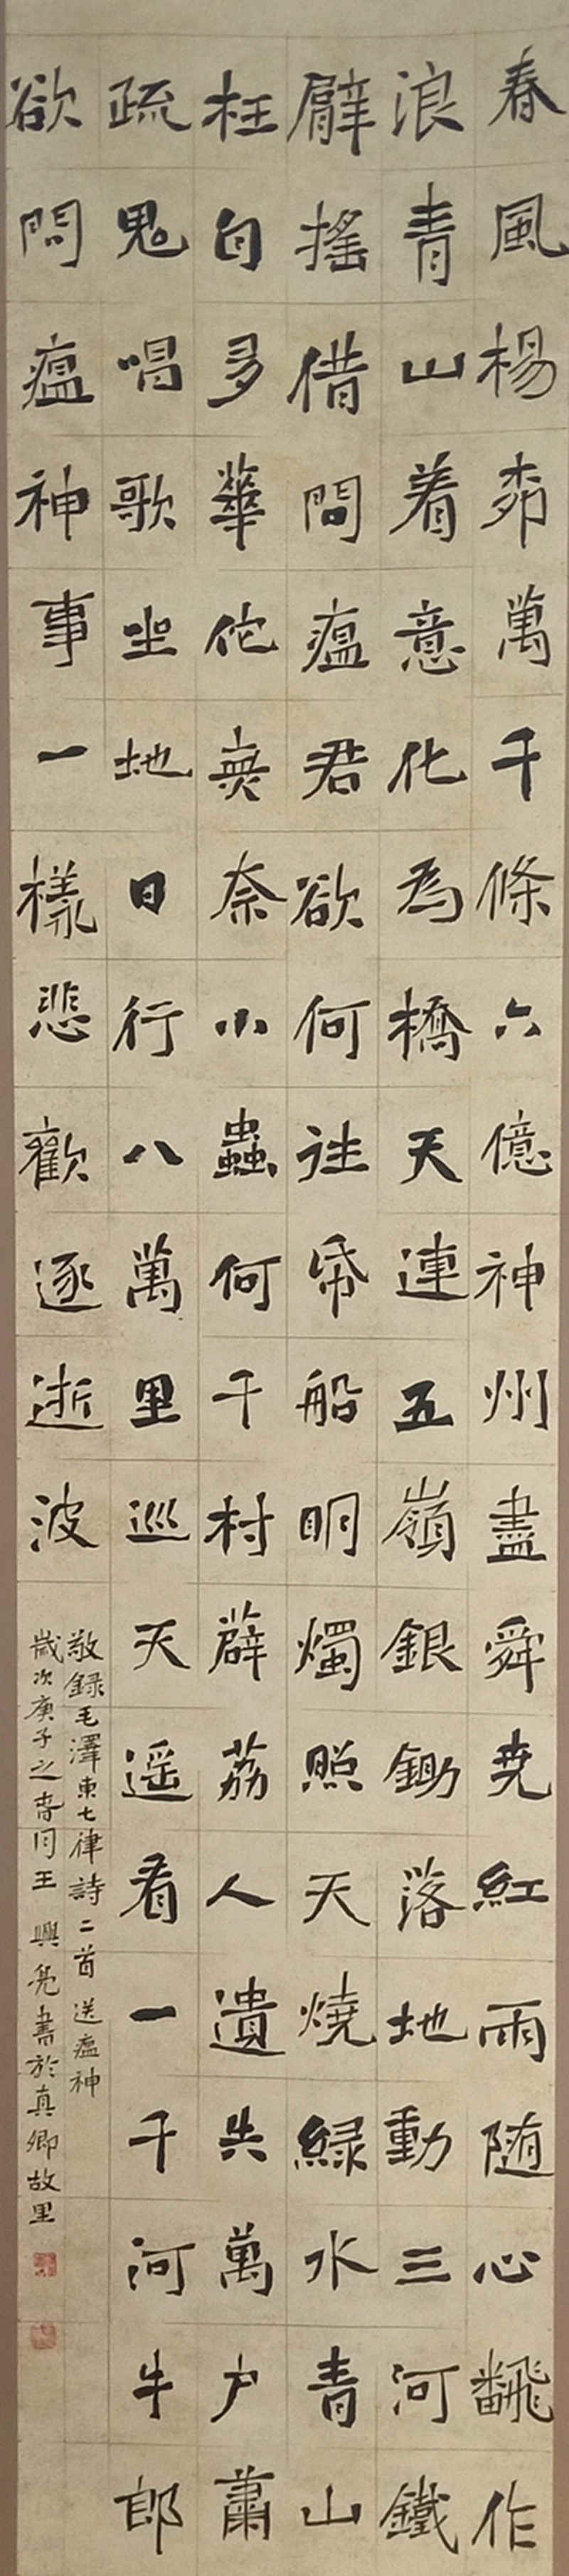 春風楊柳萬千條六億神州盡舜尭紅雨随心飜作
浪青山着意化為橋天連五嶺銀鋤落地動三河鐵
臂搖借問瘟君欲何往帋船明燭照天燒緑水青山
枉自多華佗無奈小蟲何千村薜荔人遺失萬户蕭
疏鬼唱歌坐地日行八萬里巡天遥看一千河牛郎
欲問瘟神事一樣悲歡逐逝波
敬録毛澤東七律詩二首送瘟神
歲次庚子之春月王興亮書於真卿故里